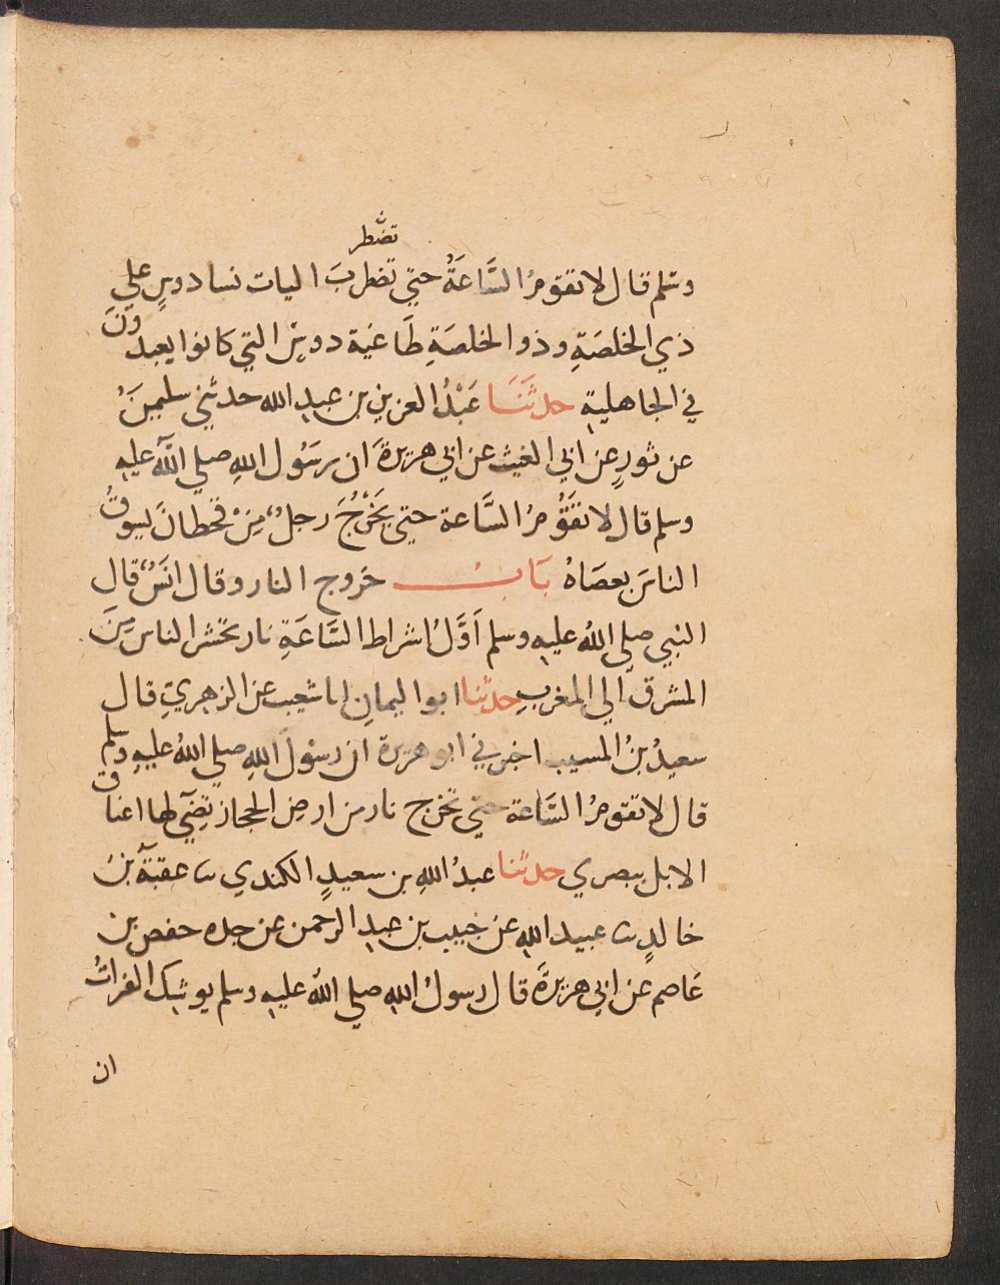 تضطر
وسلم قال لا تقوم السَّاعَةُ حتي تضطربَ اليات نسا دوسٍ علي
ذي الخلصَةِ وذو الخلصَةِ طَاغية دوسٍ التي كانوا يعبدونَ
في الجاهلية حدثَنَا عَبْدُ العزيز بن عبدِ الله حدثني سليمنُ
عن ثورٍ عن ابي الغيث عن ابي هريرةَ ان رسَُول اللهِ صلي اللّٰه عليه
وسلم قال لا تقَوُمُ السَّاعة حتي يَخْرُجَ رجلٌ مِنْ قحطانَ يسوقُ
الناسَ بعصَاهُ بَابُ خروج النار وقال انَسٌ قال
النبي صلي اللهُ عليه وسلم اَوَّلُ اشراط السَّاعَةِ نار تحشر الناس مِنَ
المشرق الي المغربِ حدثنا ابو اليمانِ انا شعيب عن الزهريّ قال
سعيدُ بنُ المسيب اخبرني ابو هريرة ان رسُولَ اللهِ صلي اللهُ عليهِ وسلم
قال لا تقومُ السَّاعة حتي تخرج نار من ارضِ الحجاز تضيٓ لها اعناق
الابل ببصري حدثنا عبدُ اللهِ بن سعيدٍ الكندي ثنا عقبةُ بنُ
خالدٍ ثنا عبيد الله عن خبيب بن عبدِ الرحمن عن جده حفص بن
عَاصم عن ابي هريرةَ قال رسولُ اللهِ صلي اللهُ عليه وسلم يوشِك الفراتُ
ان